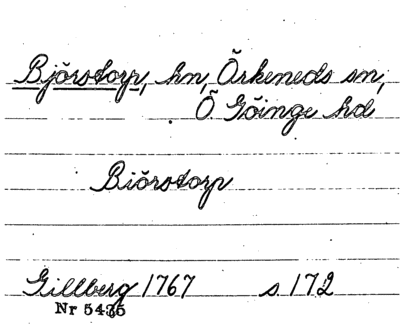 Björstorp, hn, Örkeneds sn,
Ö. Göinge hd
Biörstorp
Gillberg 1767 s 172
Nr 5435